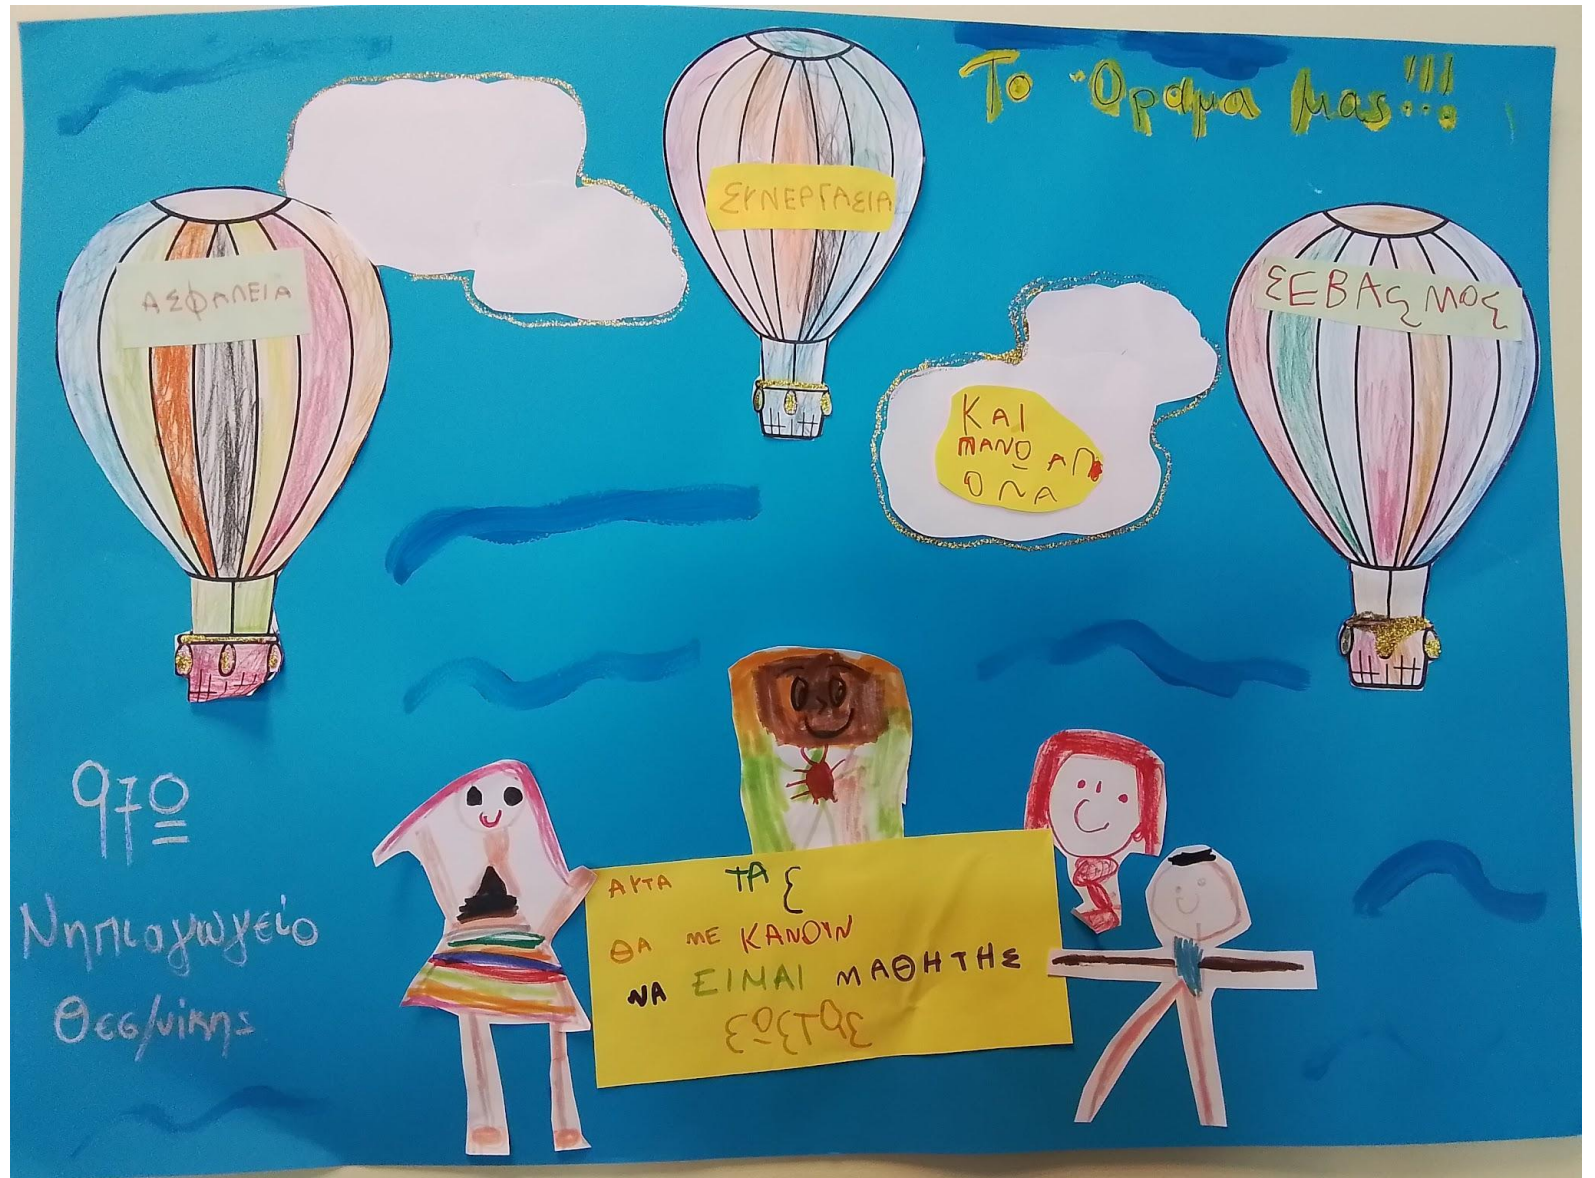 Το Όραμα μας!!!
ΣΥΝΕΡΓΑΣΙΑ
ΑΣΦΑΛΕΙΑ
ΣΕΒΑςΜΟΣ
ΚΑΙ
ΠΑΝΟ ΑΠ
ΟΛΑ
97ο
Νηπιαγωγείο
Θεσ/νίκης
ΑΥΤΑ ΤΑ Σ
ΘΑ ΜΕ ΚΑΝΟΥΝ
ΝΑ ΕΙΜΑΙ ΜΑΘΗΤΗΣ